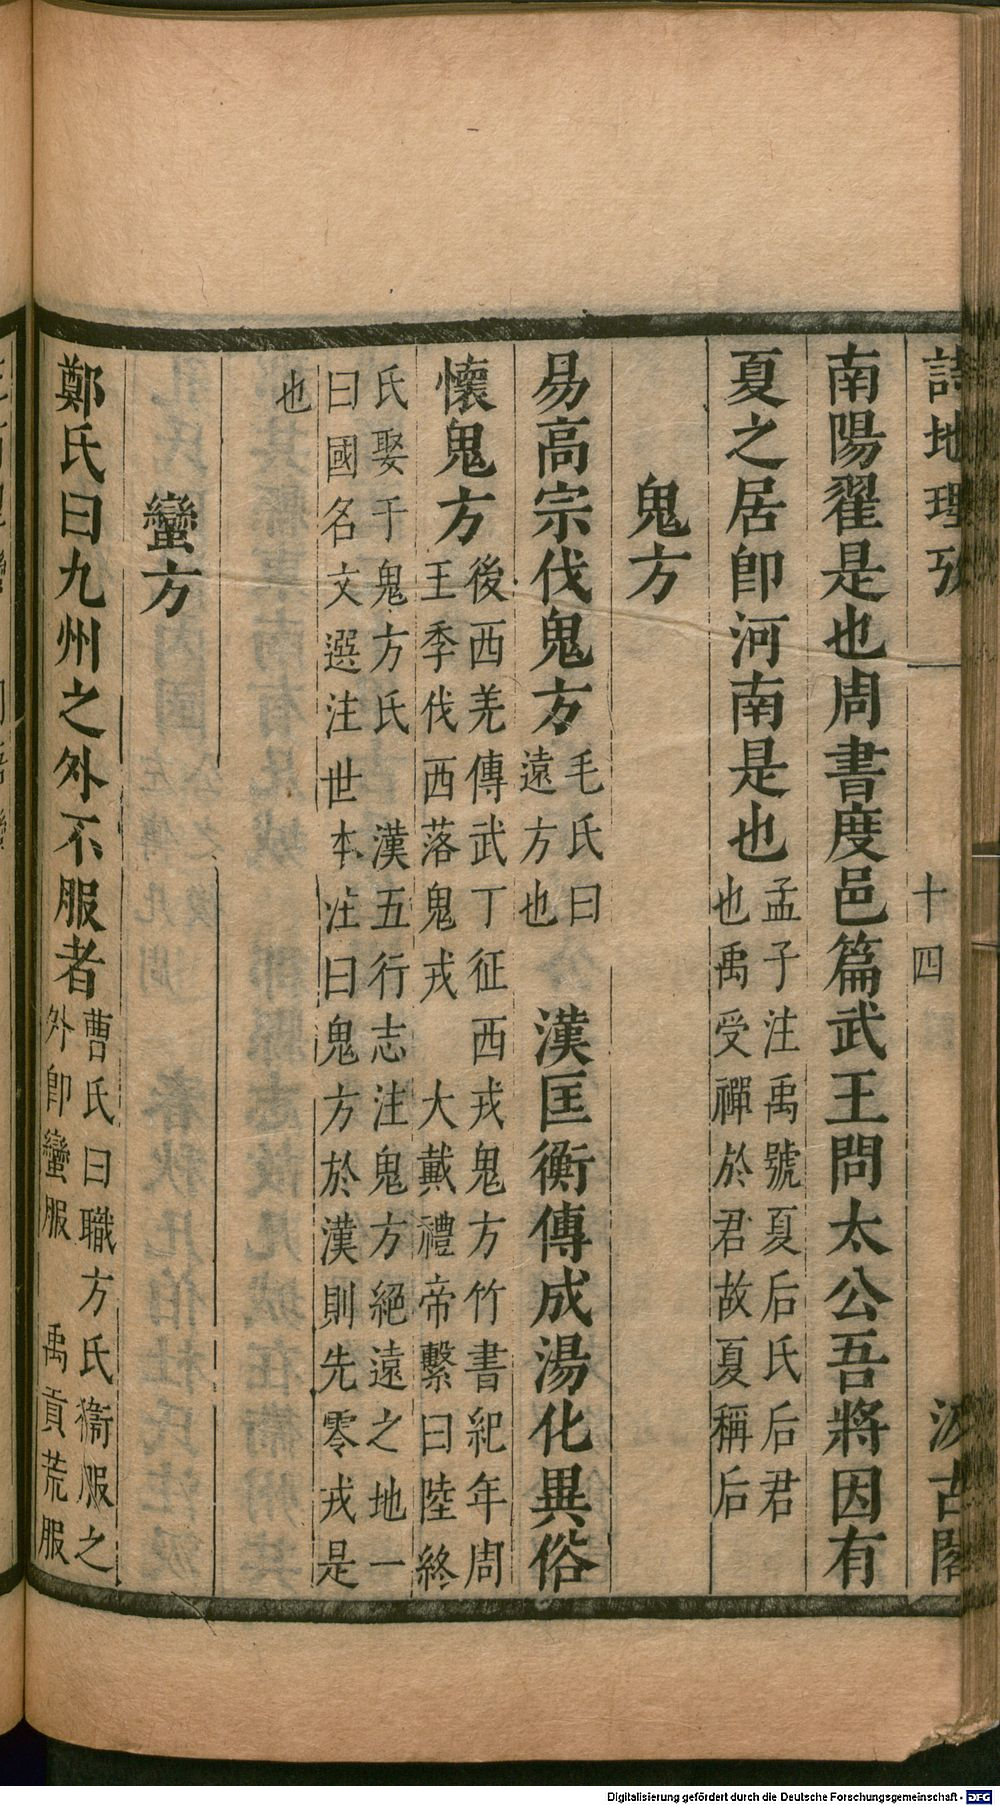 詩地理攷 十四 汲古閣
南陽翟是也周書度邑篇武王問太公吾將因有
夏之居卽河南是也孟子注禹號夏后氏后君
也禹受禪於君故夏稱后
鬼方
易高宗伐鬼方毛氏曰
遠方也
漢匡衡傳成湯化異俗
懷鬼方後西羌傳武丁征西戎鬼方竹書紀年周
王季伐西落鬼戎 大戴禮帝繫曰陸終
氏娶于鬼方氏 漢五行志注鬼方絕遠之地一
曰國名文選注世本注曰鬼方於漢則先零戎是
也
蠻方
鄭氏曰九州之外不服者曹氏曰職方氏衞服之
外卽蠻服 禹貢荒服
Digitalisierung gefördert durch die Deutsche Forschungsgemeinschaft - DFG